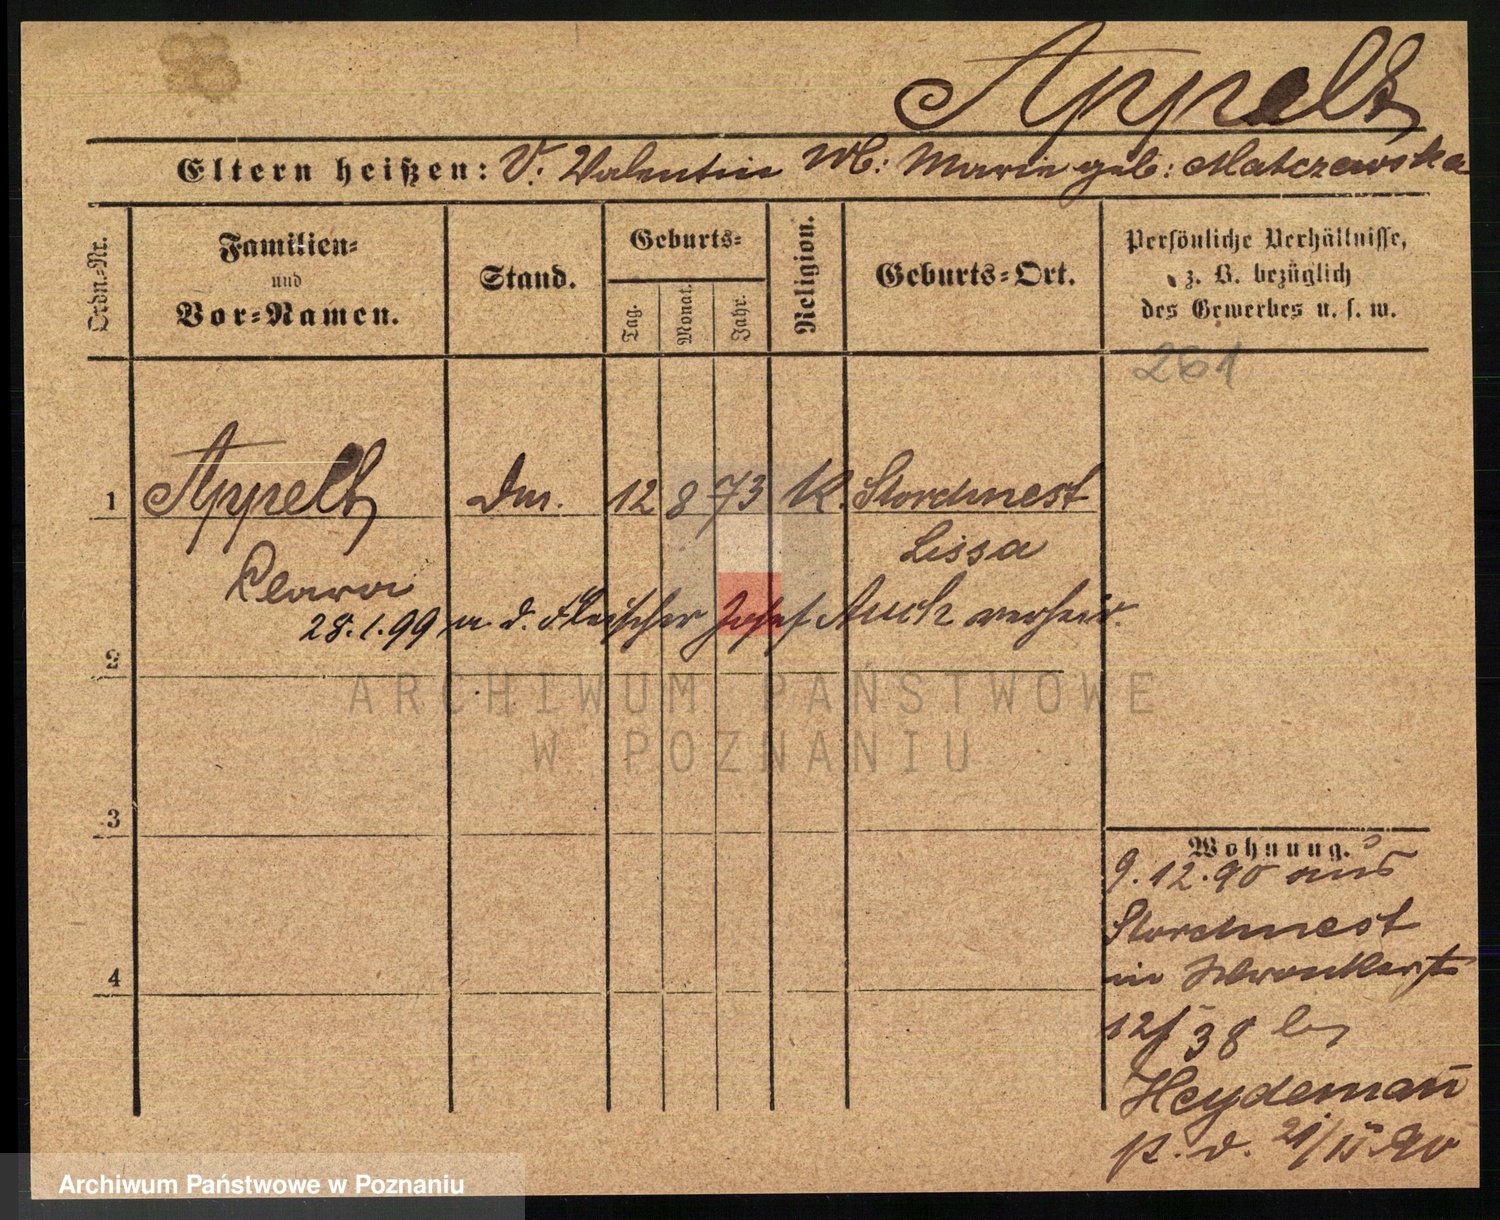 Appelt
Eltern heißen: V: Valentin M: Marie geb: Matczewska
Ordn.-Nr.
Familien-
und
Vor-Namen.
Stand.
Geburts-
Tag.
Monat.
Jahr.
Religion.
Geburts-Ort.
Persönliche Verhältnisse,
z. B. bezüglich
des Gewerbes u. s. w.
261
1 Appelt Dm. 12 8 73 K. Storchnest
Lissa
Clara
28.1.99 m. d. Fleischer Josef Auch verheir.
2
ARCHIWUM PAŃSTWOWE
W POZNANIU
3
Wohnung.
9.12.90 aus
Storchnest
in
4
38 bei
Heydemañ
p. d.
Archiwum Państwowe w Poznaniu